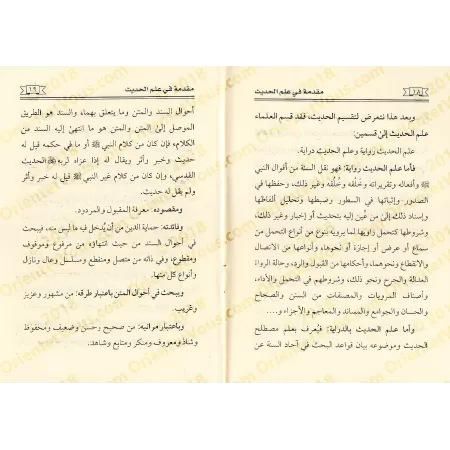 مقدمة في علم الحديث
١٨
وبعد هذا نتعرض لتقسيم الحديث، فقد قسم العلماء
علم الحديث إلى قسمين:
علم الحديث رواية وعلم الحديث دراية.
فأما علم الحديث رواية: فهو نقل السنة من أقوال النبي
ﷺ وأفعاله وتقريراته وخَلقه وخُلقه وغير ذلك، وحفظها في
الصدور وإثباتها في السطور وضبطها وتحليل ألفاظها
وإسناد ذلك إلى من عُين إليه بتحديث أو إخبار وغير ذلك،
وشروطها كتحمل راويها لما يرويه بنوع من أنواع التحمل من
سماع أو عرض أو إجازة أو نحوها، وأنواعها من الاتصال
والانقطاع ونحوهما، وأحكامها من القبول والرد، وحالة الرواة
العدالة والجرح ونحو ذلك، وشروطهم في التحمل والأداء،
وأصناف المرويات والمصنفات من السنن والصحاح
والحسان والجوامع والمسانيد والمعاجم والأجزاء و....
وأما علم الحديث بالدراية: فيُعرف بعلم مصطلح
الحديث وموضوعه بيان قواعد البحث في آحاد السنة عن
مقدمة في علم الحديث
١٩
أحوال السند والمتن وما يتعلق بهما، والسند هو الطريق
الموصل إلى المتن والمتن هو ما انتهى إليه السند من
الكلام، فإن كان من كلام النبي ﷺ أو ما في حكمه قيل له
حديث وخبر وأثر ويقال له إذا عزاه لربه الحديث
القدسي، وإن كان من كلام غير النبي ﷺ قيل له خبر وأثر
ولم يقل له حديث.
ومقصوده: معرفة المقبول والمردود.
وفائدته: حماية الدين من أن يُدخل فيه ما ليس منه، فيبحث
في أحوال السند من حيث انتهاؤه من مرفوع وموقوف
ومقطوع، وفي ذاته من متصل ومنقطع ومسلسل وعال ونازل
وأنواع كل منها.
ويبحث في أحوال المتن باعتبار طرقه: من مشهور وعزيز
وغريب.
وباعتبار مراتبه: من صحيح وحسن وضعيف ومحفوظ
وشاذ ومعروف ومنكر ومتابع وشاهد.